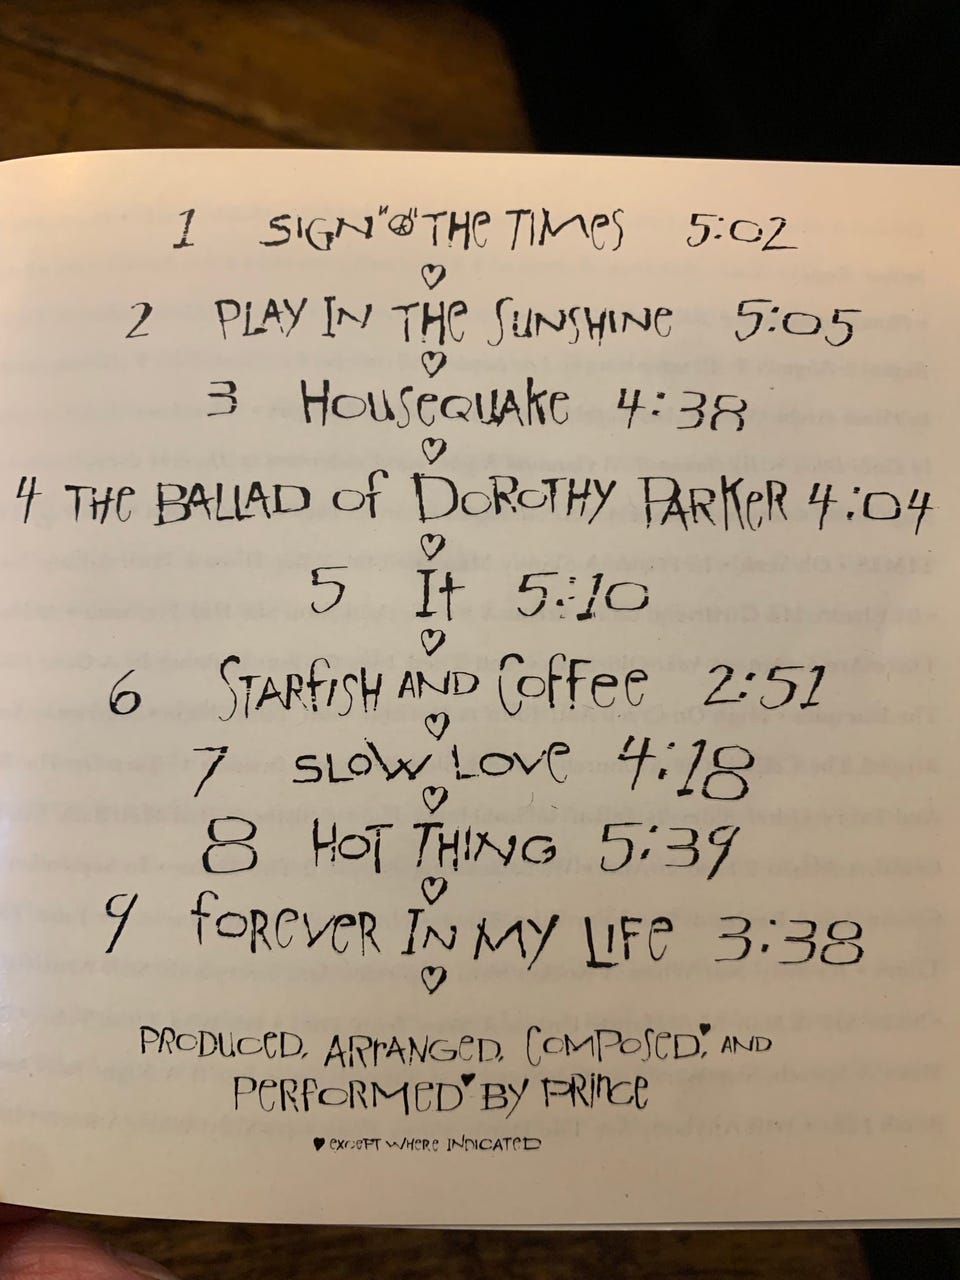 1 SIGN "☮" THE TIMES 5:02
♡
2 PLAY IN THE SUNSHINE 5:05
♡
3 HOUSEQUAKE 4:38
♡
4 THE BALLAD of DOROTHY PARKER 4:04
♡
5 It 5:10
♡
6 STARFISH AND COFFEE 2:51
♡
7 SLOW LOVE 4:18
♡
8 HOT THING 5:39
♡
9 FOREVER IN MY LIFE 3:38
♡
PRODUCED, ARRANGED, COMPOSED,♥ AND
PERFORMED♥ BY PRINCE
♥ EXCEPT WHERE INDICATED